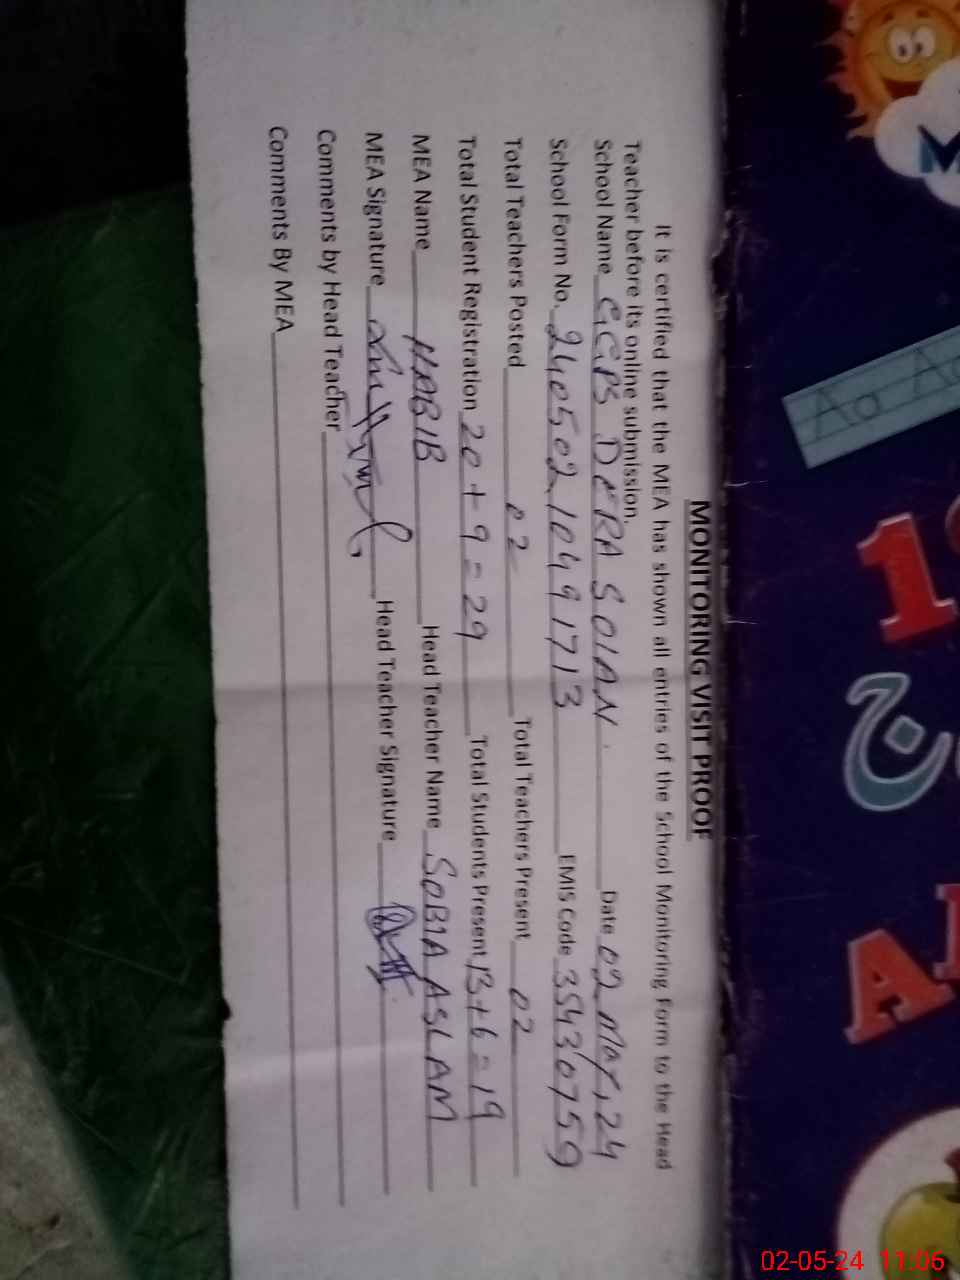 MONITORING VISIT PROOF
It is certified that the MEA has shown all entries of the School Monitoring Form to the Head
Teacher before its online submission.
School Name GGPS DERA SOIAN. Date 02 MAY, 24
School Form No. 240502 10491713 EMIS Code 35430759
Total Teachers Posted 02 Total Teachers Present 02
Total Student Registration 20 + 9 = 29 Total Students Present 13+6 = 19
MEA Name HABIB Head Teacher Name SOBIA ASLAM
MEA Signature Head Teacher Signature
Comments by Head Teacher
Comments By MEA
Aa Aa
1
ج
A
M
02-05-24 11:06